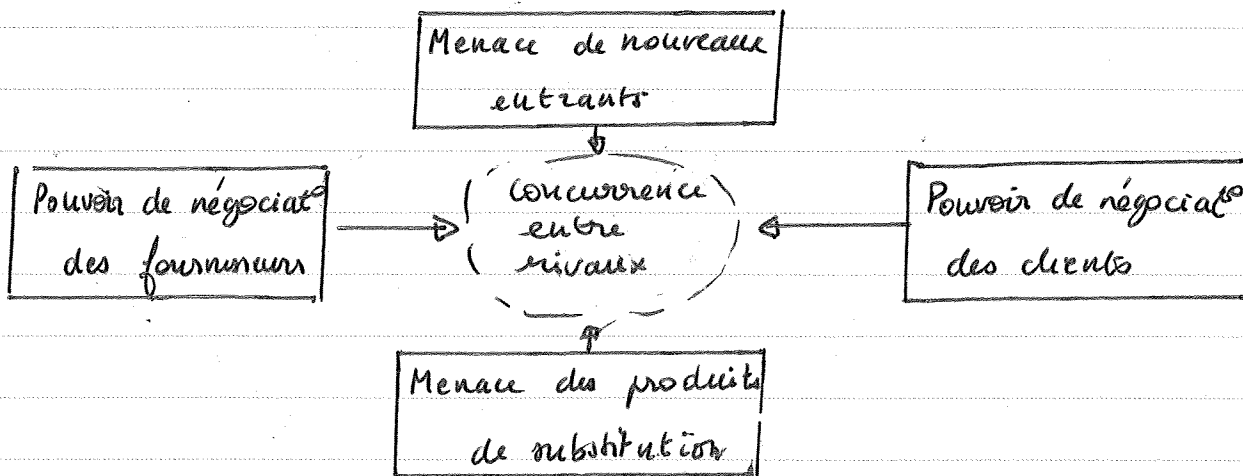 Menace de nouveaux
entrants
Pouvoir de négociat°
des fournisseurs
concurrence
entre
rivaux
Pouvoir de négociat°
des clients
Menace des produits
de substitution